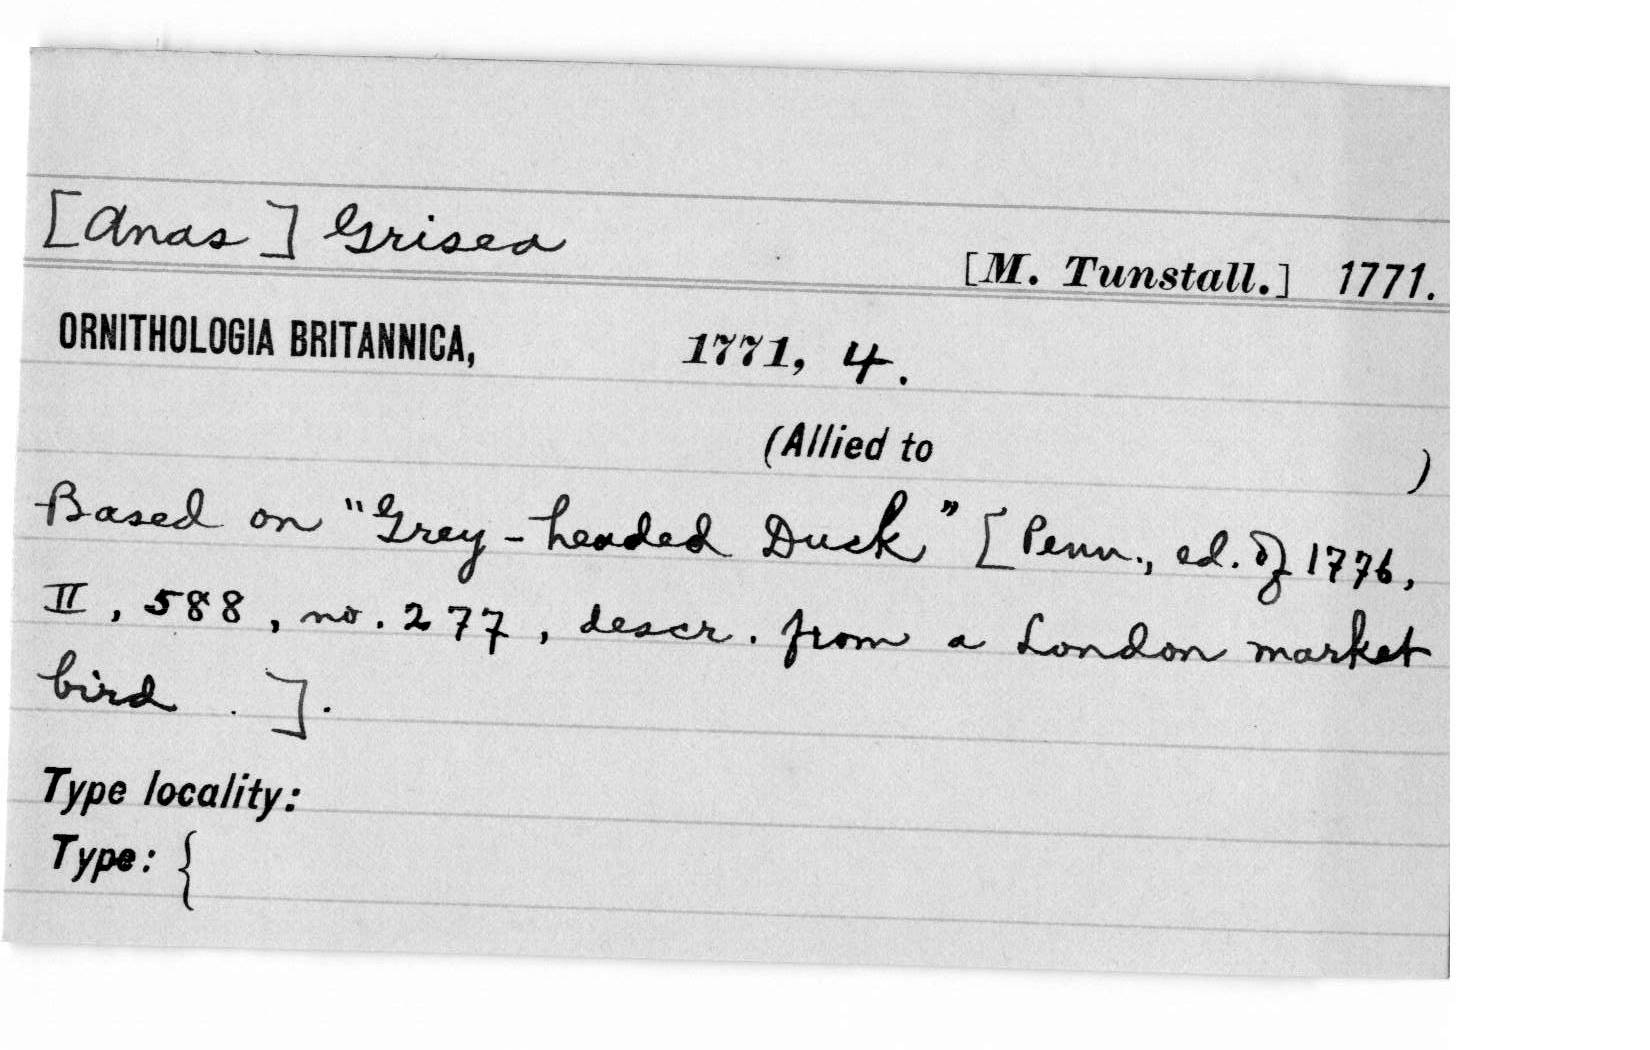 [Anas] Grisea
[M. Tunstall.] 1771.
ORNITHOLOGIA BRITANNICA, 1771, 4.
(Allied to )
Based on "Grey-headed Duck" [Penn., ed. of 1776,
II, 588, no. 277, descr. from a London market
bird . ].
Type locality:
Type: {